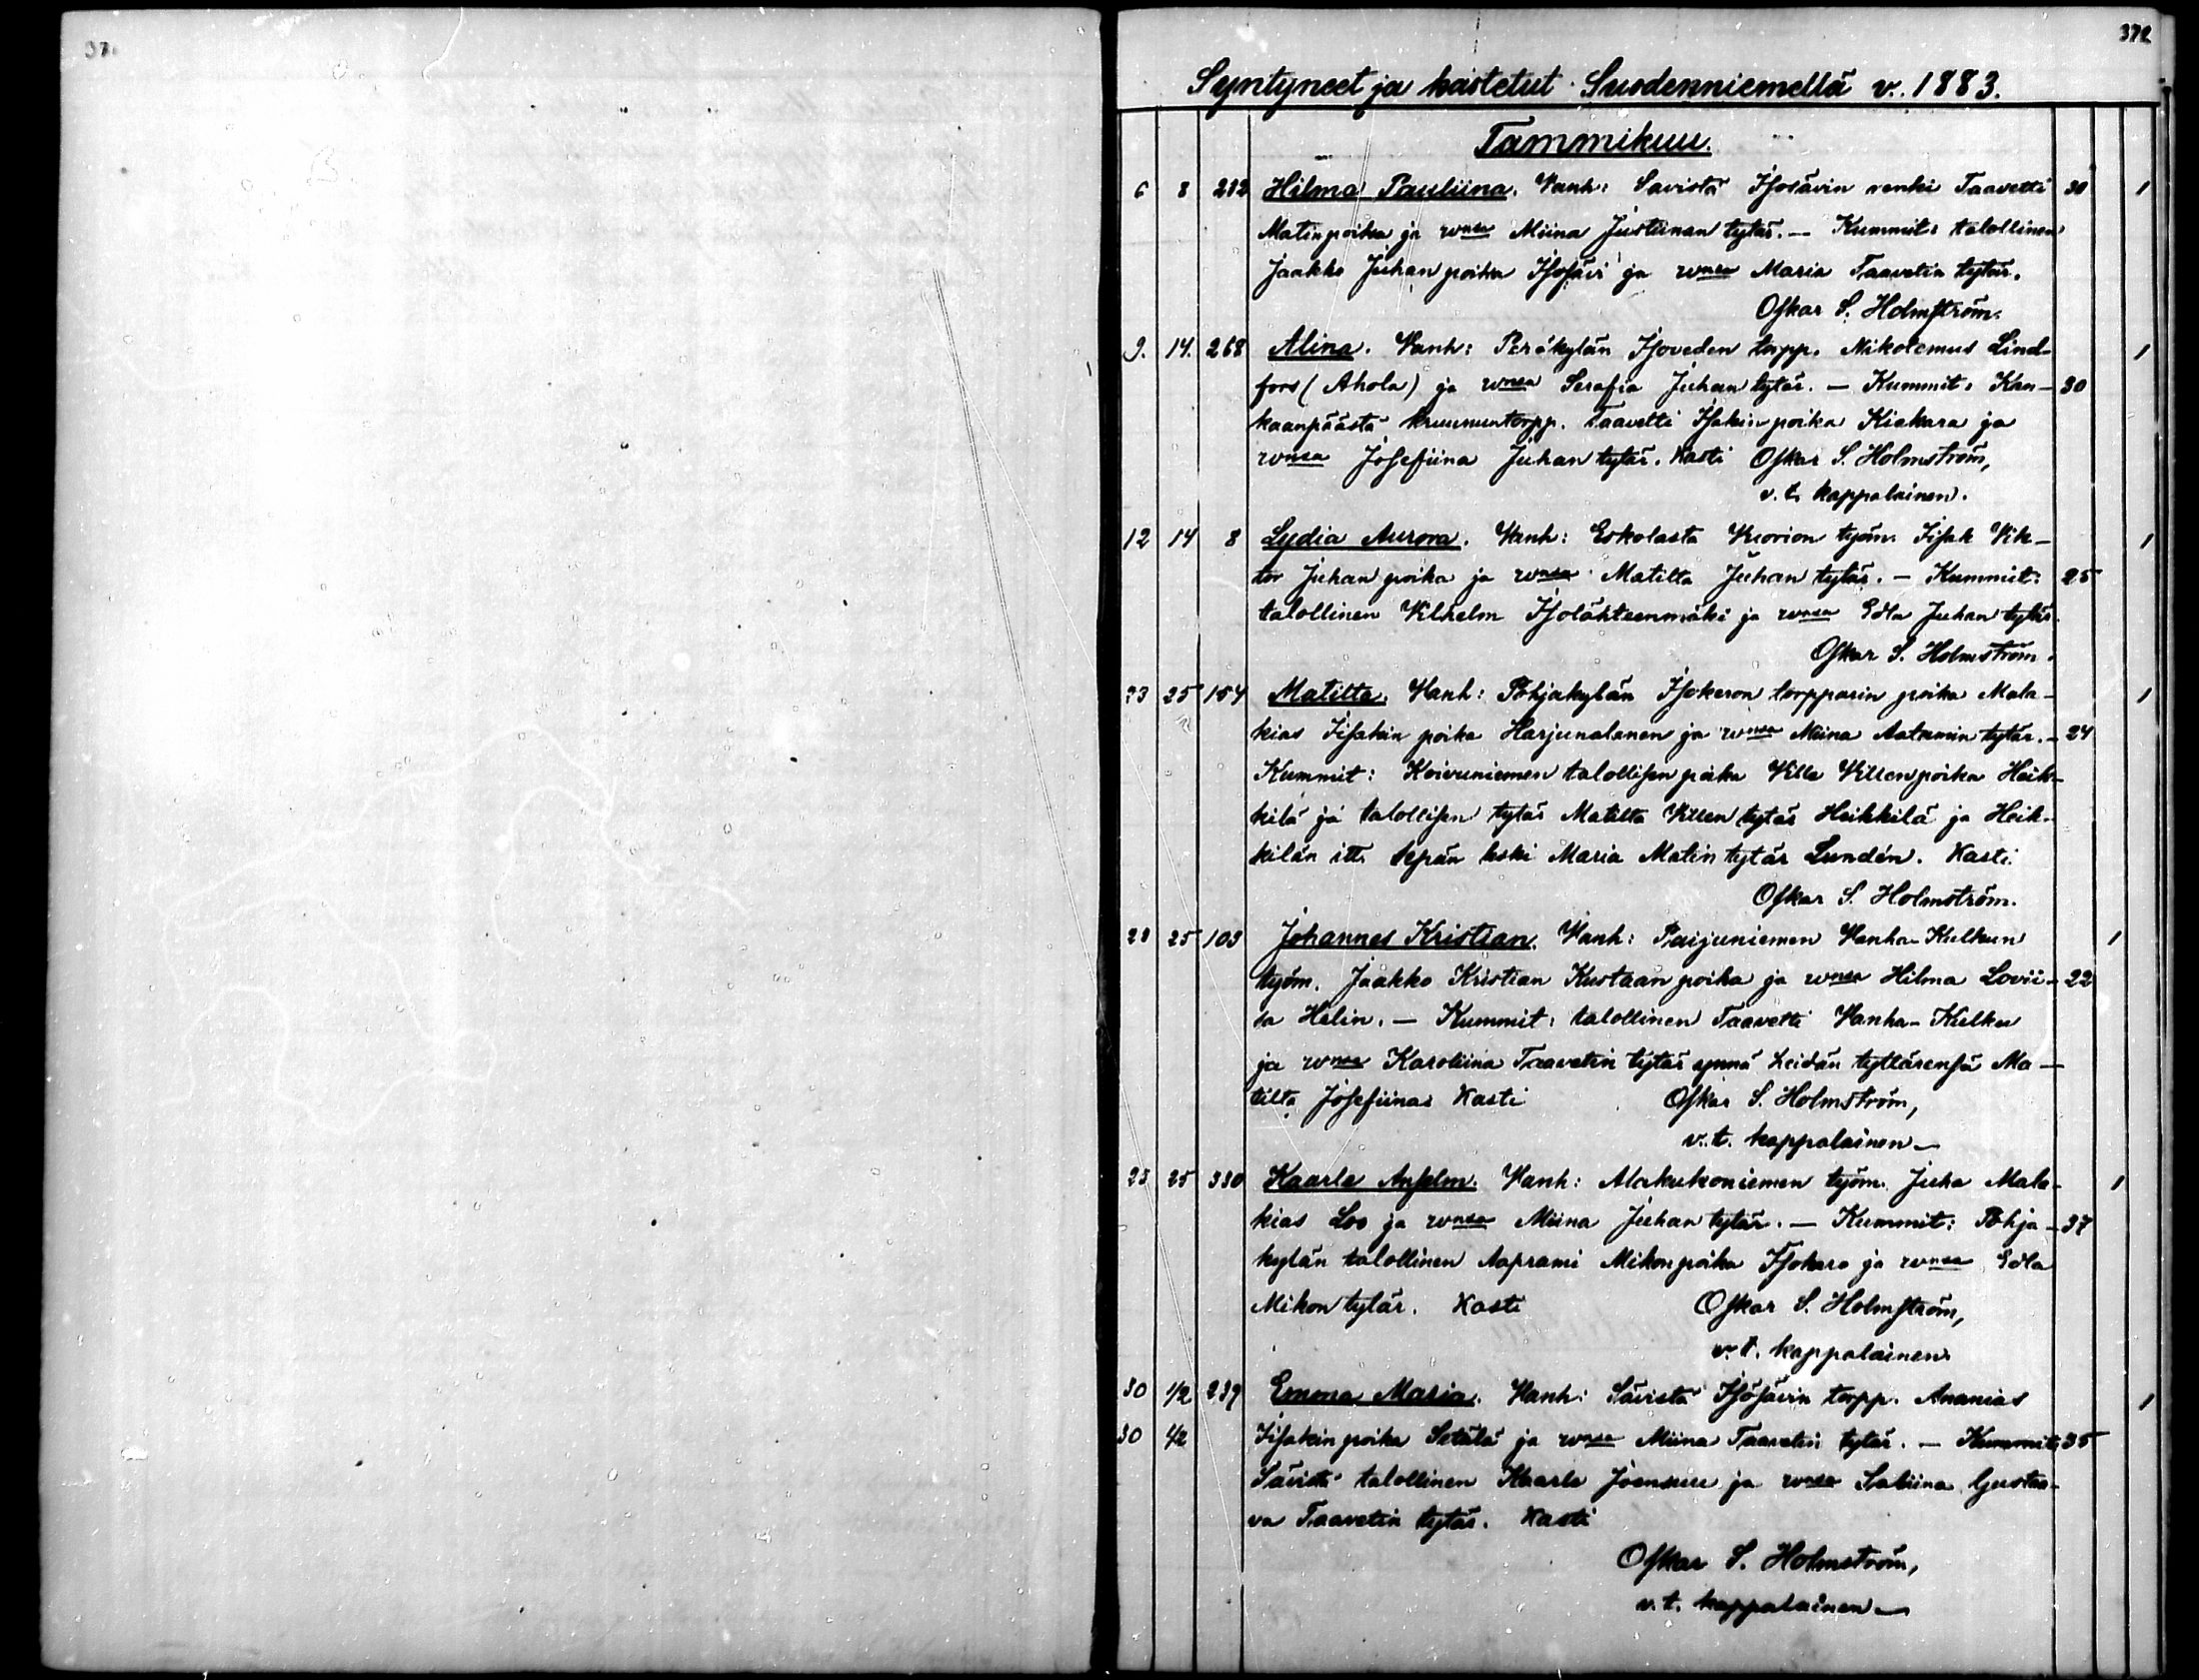 37
372
Syntyneet ja kastetut Suodenniemellä v. 1883.
Tammikuu.
6 8 282 Hilma Pauliina. Vanh: Sävistä Isosävin renki Taavetti 30 1
Matinpoika ja vmsa Miina Justiinan tytär. — Kummit: talollinen
Jaakko Juhanpoika Isosävi ja vmsa Maria Taavetin tytär.
Oskar S. Holmström.
9. 14. 268 Alina. Vanh: Peräkylän Isoveden torpp. Nikotemus Lind- 1
fors (Ahola) ja vmsa Serafia Juhan tytär. — Kummit: Kan- 30
kaanpäästä kruununtorpp. Taavetti Isakinpoika Kiakara ja
vmsa Josefiina Juhan tytär. Kasti Oskar S. Holmström,
v. t. kappalainen.
12 14 8 Lydia Aurora. Vanh: Eskolasta Vuorion työm. Iisak Vik- 1
tor Juhanpoika ja vmsa Matilta Juhan tytär. — Kummit: 25
talollinen Vilhelm Isolähteenmäki ja vmsa Edla Juhan tytär.
Oskar S. Holmström.
23 25 154 Matilta. Vanh: Pohjakylän Isokeron torpparin poika Mala- 1
kias Iisakin poika Harjunalanen ja vmsa Miina Aatamin tytär. — 24
Kummit: Koivuniemen talollisen poika Ville Villenpoika Heik-
kilä ja talollisen tytär Matilta Villen tytär Heikkilä ja Heik-
kilän itt. sepän leski Maria Matin tytär Lundén. Kasti
Oskar S. Holmström.
23 25 103 Johannes Kristian. Vanh: Paijuniemen Vanha-Kulkun 1
työm. Jaakko Kristian Kustaan poika ja vmsa Hilma Lovii- 22
sa Helin. — Kummit: talollinen Taavetti Vanha-Kulku
ja vmsa Karoliina Taavetin tytär ynnä heidän tyttärensä Ma-
tilta Josefiina. Kasti Oskar S. Holmström,
v. t. kappalainen —
23 25 330 Kaarle Anselm. Vanh: Alakukoniemen työm. Juha Mala- 1
kias Loo ja vmsa Miina Juhan tytär. — Kummit: Pohja- 37
kylän talollinen Aaprami Mikonpoika Isokero ja vmsa Edla
Mikon tytär. Kasti Oskar S. Holmström,
v. t. kappalainen.
30 1/2 239 Emma Maria. Vanh: Sävistä Isosävin torpp. Ananias 1
30 4/2 Iisakin poika Setälä ja vmsa Miina Taavetin tytär. — Kummit: 35
Sävistä talollinen Kaarle Joensuu ja vmsa Sabiina Gustaa-
va Taavetin tytär. Kasti
Oskar S. Holmström,
v. t. kappalainen —